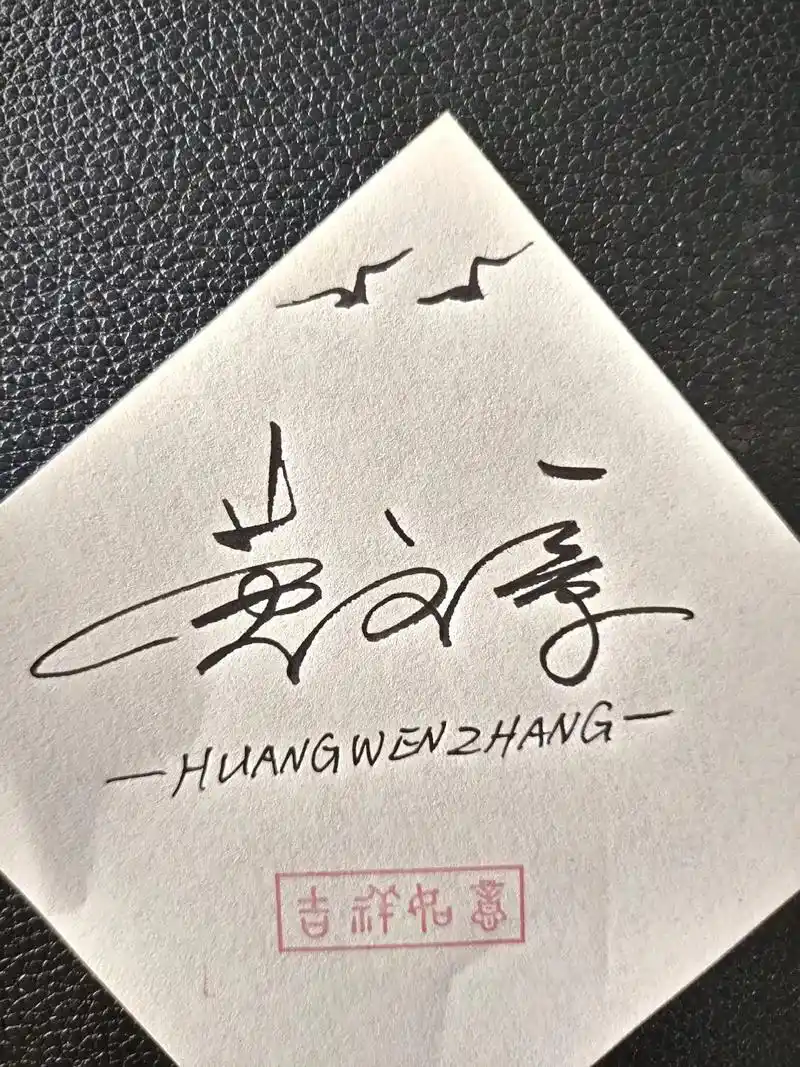 黄文章
—HUANGWENZHANG—
吉祥如意